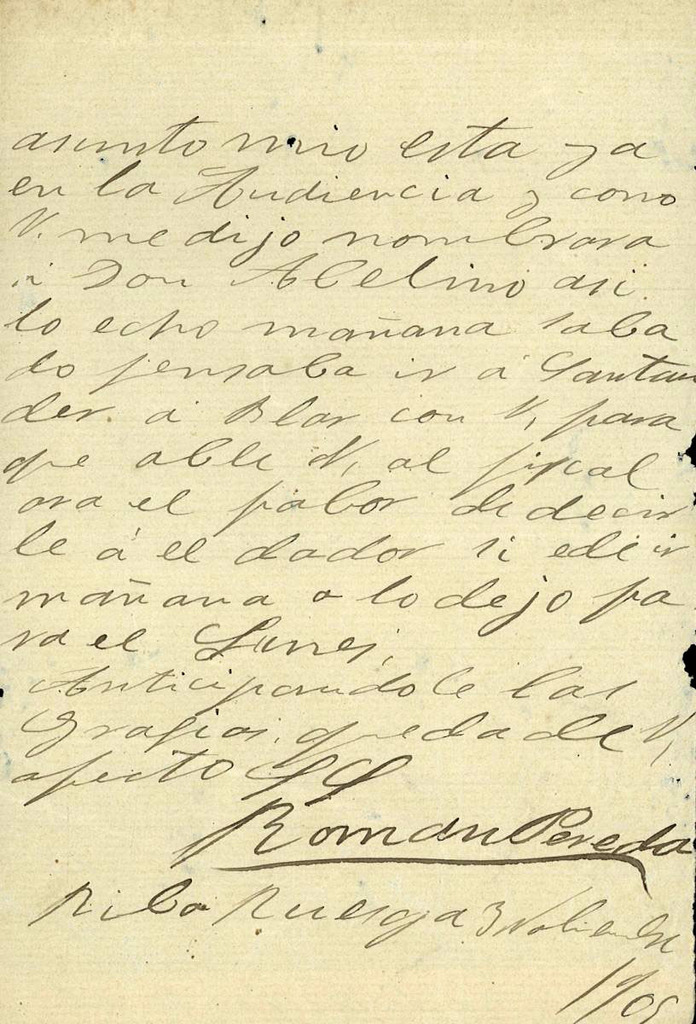 asunto mio esta ya
en la Audiencia y como
V. me dijo nombrara
a Don Abelino asi
lo echo mañana saba
do pensaba ir á Santan
der á Blar con V, para
que able V, al fiscal
ara el fabor de decir
le á el dador si e de ir
mañana o lo dejo pa
ra el Lunes,
Anticipandole las
Grasias, queda de V,
afecto SS
Roman Pereda
Riba Ruesga 3 Nobiembre
1905